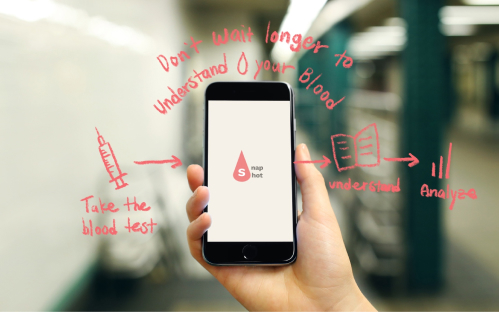 Don't Wait longer to
Understand your Blood
Take the
blood test
S nap
hot
understand
Analyze